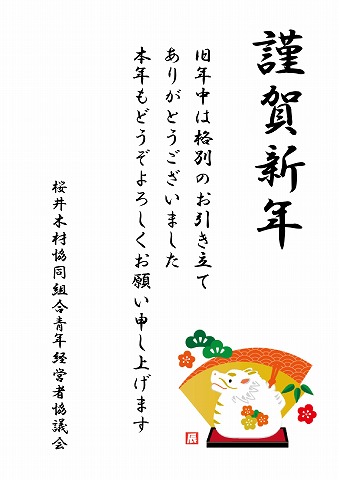 謹賀新年
旧年中は格別のお引き立て
ありがとうございました
本年もどうぞよろしくお願い申し上げます
桜井木材協同組合青年経営者協議会
辰